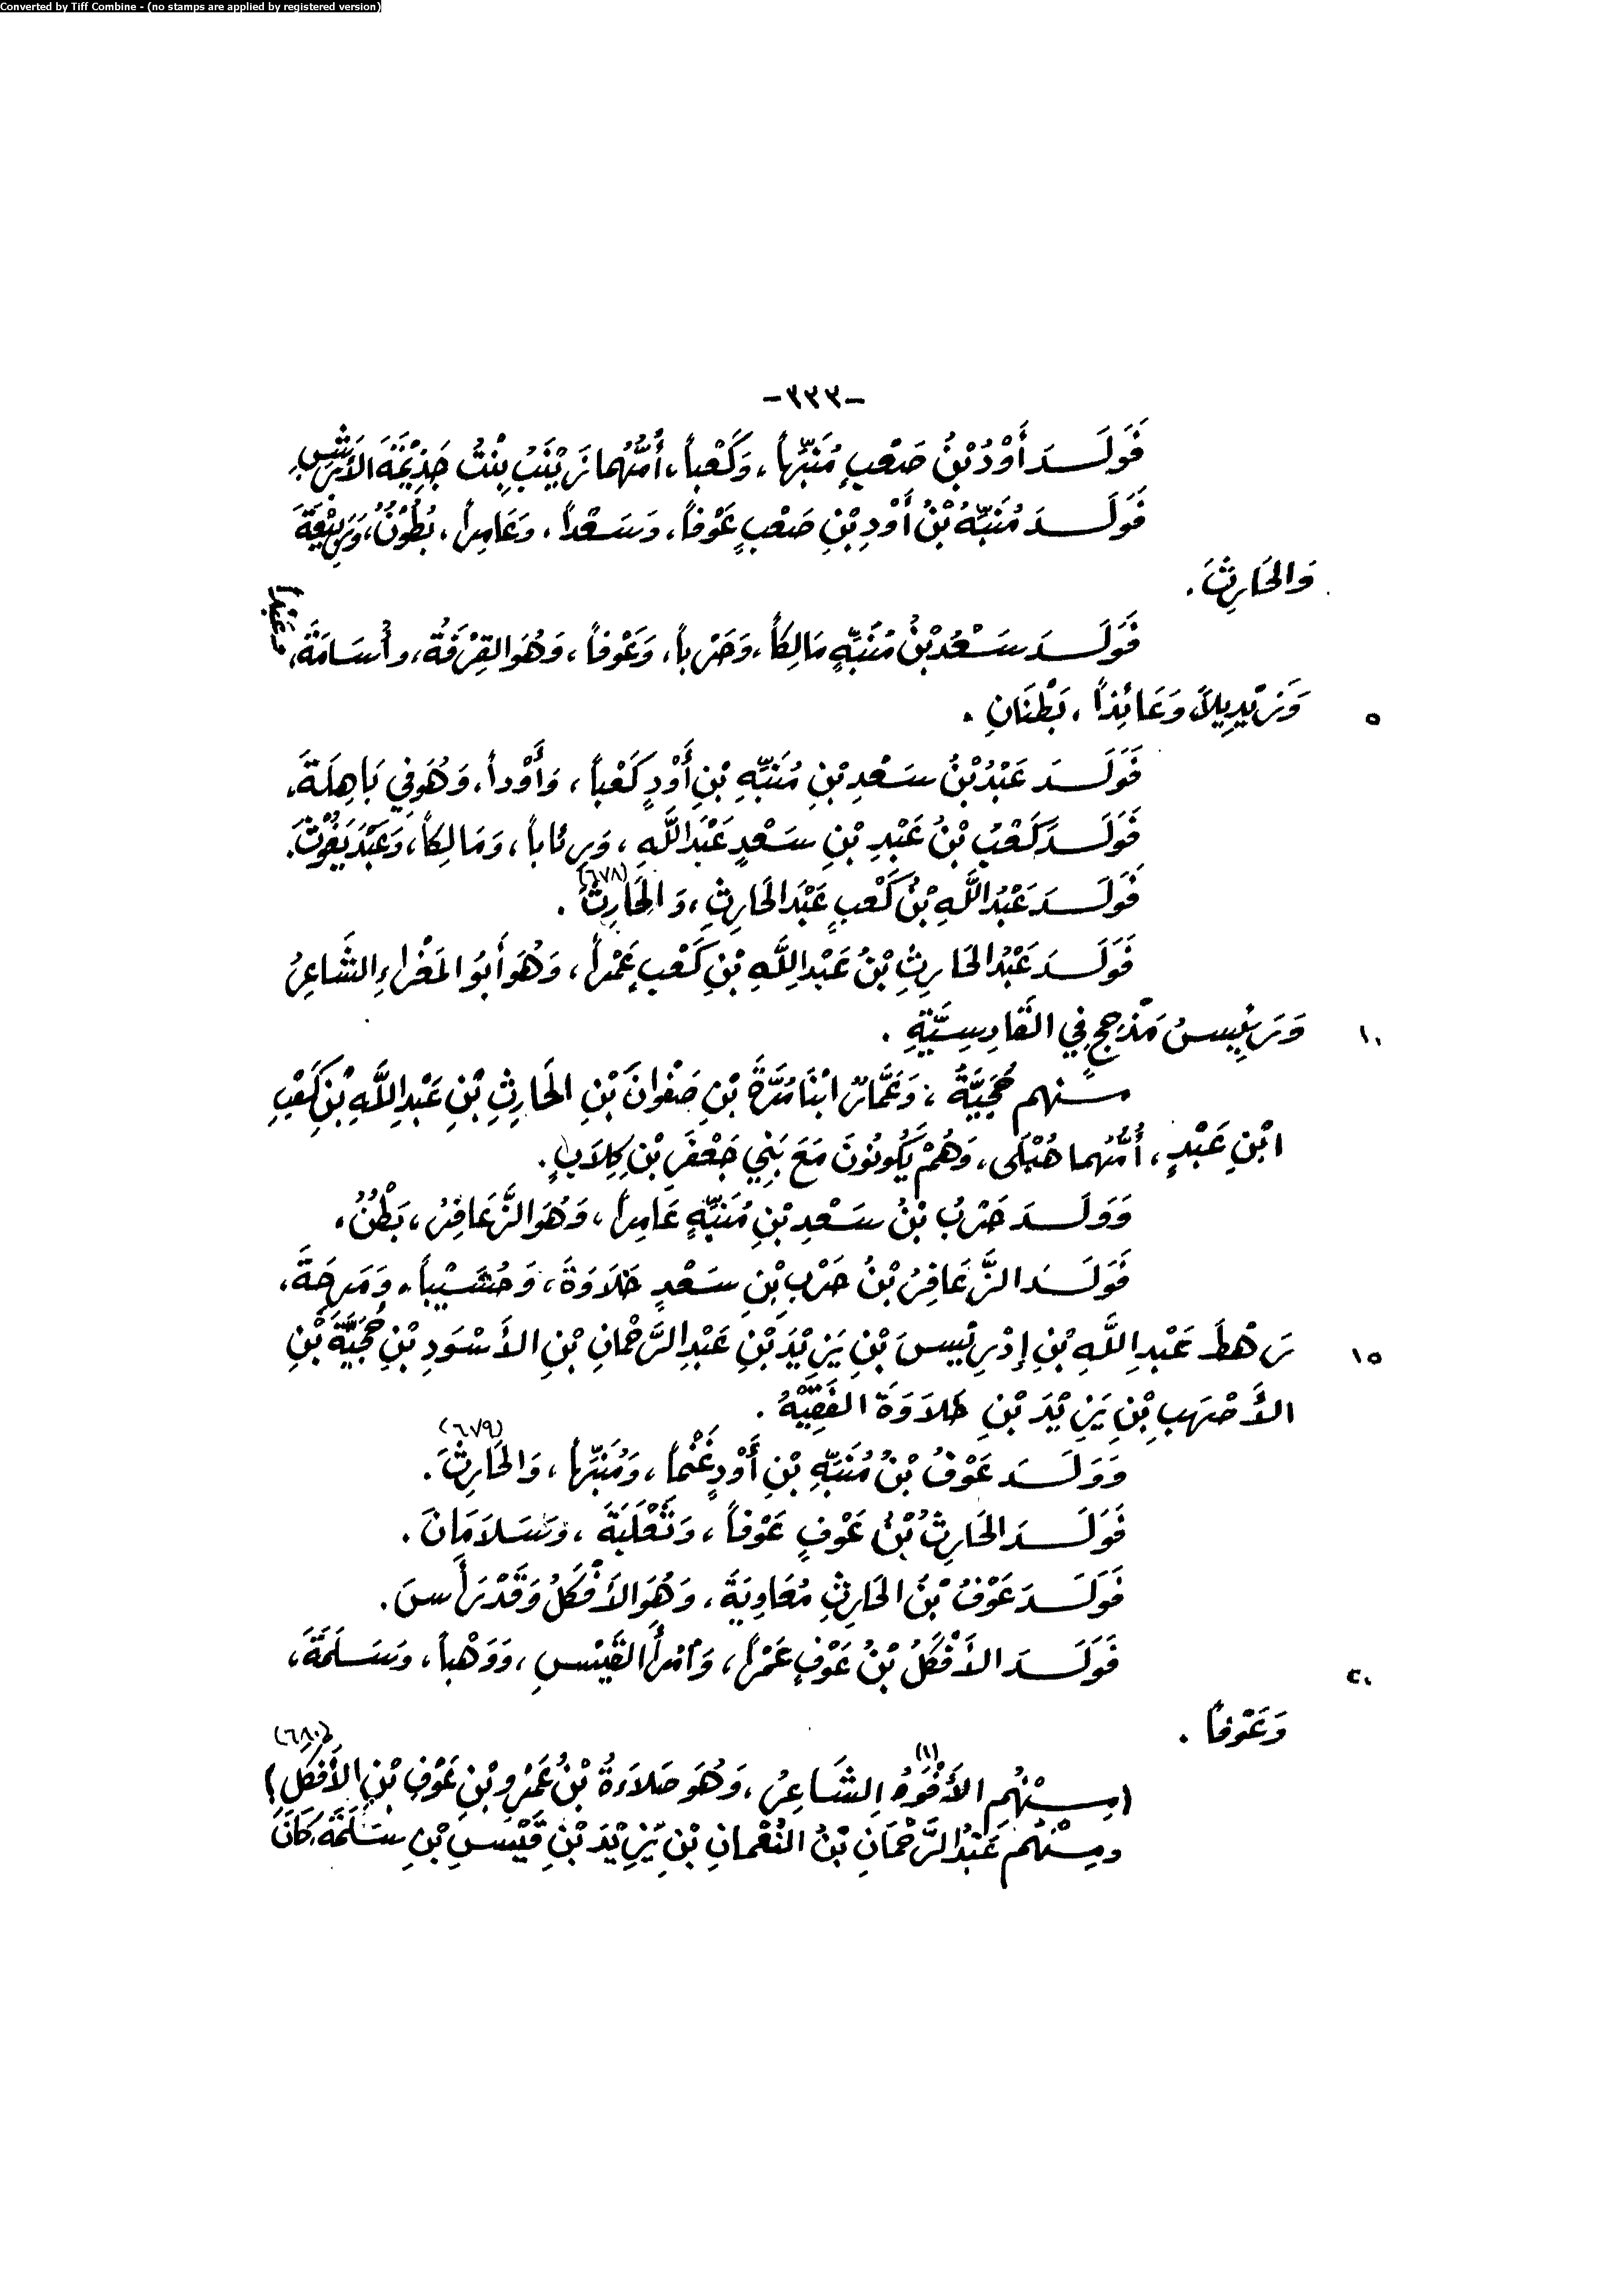 Converted by Tiff Combine - (no stamps are applied by registered version)
-٣٣٣-
فَوَلَـدَ أَوْدُ بْنُ صَعْبٍ مُنَبِّهاً، وَكَعْباً، أُمُّهُما زَيْنَبُ بِنْتُ جَذِيْمَةَ الأَبْرَشِ.
فَوَلَـدَ مُنَبِّهُ بْنُ أَوْدِ بْنِ صَعْبٍ عَوْفاً، وَسَعْداً، وَعَامِراً، بُطُوْنٌ، وَرَبِيْعَةَ
وَالحَارِثَ.
فَوَلَـدَ سَعْدُ بْنُ مُنَبِّهٍ مَالِكاً، وَحَرْباً، وَعَوْفاً، وَهُوَ القِرْفَةُ، وأُسَامَةَ، وعَبْداً
٥ وَزَيْدِيلاً وَعَائِذاً، بَطْنَانِ.
فَوَلَـدَ عَبْدُ بْنُ سَعْدِ بْنِ مُنَبِّهِ بْنِ أَوْدٍ كَعْباً، وَأَوْداً، وَهُوَ فِي بَاهِلَةَ.
فَوَلَـدَ كَعْبُ بْنُ عَبْدِ بْنِ سَعْدٍ عَبْدَ اللَّهِ، وَرِئاباً، وَمَالِكاً، وَعَبْدَ يَغُوْثَ.
فَوَلَـدَ عَبْدُ اللَّهِ بْنُ كَعْبٍ عَبْدَ الحَارِثِ، وَالحَارِثَ (٦٧٨).
فَوَلَـدَ عَبْدُ الحَارِثِ بْنُ عَبْدِ اللَّهِ بْنِ كَعْبٍ عَمْراً، وَهُوَ أَبُو المَغْراءِ الشَّاعِرُ
١٠ وَرَئِيسُ مَذْحِجٍ فِي القَادِسِيَّةِ.
مـنهم حُجَيَّةُ، وَعَمَّارٌ ابْنَا مُرَّةَ بْنِ صَفْوانَ بْنِ الحَارِثِ بْنِ عَبْدِ اللَّهِ بْنِ كَعْبِ
ابْنِ عَبْدٍ، أُمُّهُما هُبْلَى، وَهُمْ يَكُونُونَ مَعَ بَنِي جَعْفَرِ بْنِ كِلَابٍ.
وَوَلَـدَ حَرْبُ بْنُ سَعْدِ بْنِ مُنَبِّهٍ عَامِراً، وَهُوَ الزَّعَافِرُ، بَطْنٌ.
فَوَلَـدَ الزَّعَافِرُ بْنُ حَرْبِ بْنِ سَعْدٍ خَلَاوَةَ، وَحُشَيْباً، وَمَرِحَةَ.
١٥ رَهْطَ عَبْدِ اللَّهِ بْنِ إدْرِيْسَ بْنِ يَزِيْدَ بْنِ عَبْدِ الرَّحْمانِ بْنِ الأَسْوَدِ بْنِ حُجَيَّةَ بْنِ
الأَصْهَبِ بْنِ يَزِيْدَ بْنِ خَلاَوَةَ الفَقِيْهُ.
وَوَلَـدَ عَوْفُ بْنُ مُنَبِّهِ بْنِ أَوْدٍ غَنْماً (٦٧٩)، وَمُنَبِّهاً، وَالحَارِثَ.
فَوَلَـدَ الحَارِثُ بْنُ عَوْفٍ عَوْفاً، وَثَعْلَبَةَ، وَسَلَامَانَ.
فَوَلَـدَ عَوْفُ بْنُ الحَارِثِ مُعَاوِيَةَ، وَهُوَ الأَفْكَلُ وَقَدْ رَأَسَ.
٢٠ فَوَلَـدَ الأَفْكَلُ بْنُ عَوْفٍ عَمْراً، وَامْرأَ القَيْسِ، وَوَهْباً، وَسَلَمَةَ،
وَعَوْفاً.
(مِـنْهُم الأَفْوَهُ (١) الشَّاعِرُ، وَهُوَ صَلاَءَةُ بْنُ عَمْرِو بْنِ عَوْفِ بْنِ الأَفْكَلِ) (٦٨٠)
ومِـنْهُم عَبْدُ الرَّحْمَانِ بْنُ النُعْمانِ بْنِ يَزِيْدَ بْنِ قَيْسِ بْنِ سَلَمَةَ، كَانَ